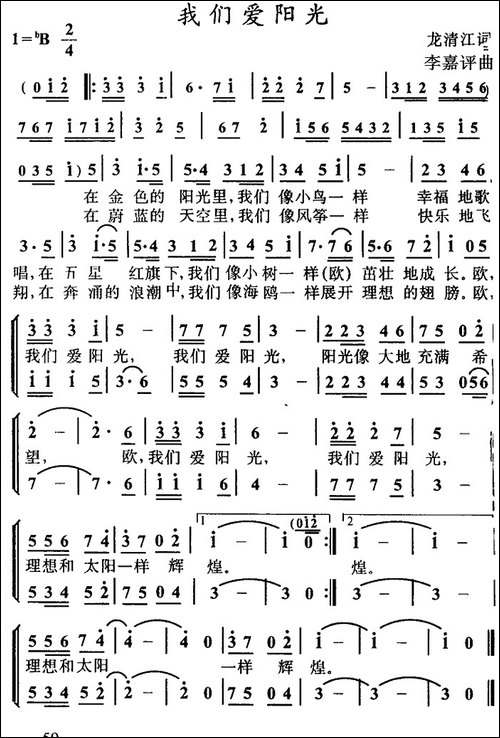 我们爱阳光
1=♭B 2/4
龙清江词
李嘉评曲
(0 1 2 ‖: 3 3 3 3 | 6· 7 1 | 2 2 2 7 | 5 - | 3 1 2 3 4 5 6
7 6 7 1 7 1 2 | 3 2 5 | 6 7 2 | 5 1 2 6 5 4 3 2 | 1 3 5 1 5
0 3 5 1) 5 | 3 1·5 | 5·4 3 1 2 | 3 4 5 1 | 5 - | 2 3 4 6
在金色的 阳光里,我们 像小鸟一样 幸福 地歌
在蔚蓝的 天空里,我们 像风筝一样 快乐 地飞
3·5 | 3 1·5 | 5·4 5 3 2 | 3 4 5 1 | 7·7 6 | 5 6 7 2 | 1· 5
唱,在 五星 红旗下,我们 像小树一样(欧)茁壮 地成长。欧,
翔,在 奔涌的 浪潮中,我们 像海鸥一样展开 理想 的翅膀。欧,
3 3 3 1 | 5 - | 7 7 7 5 | 3 - | 2 2 3 4 6 | 7 5 0 2
我们爱阳光, 我们爱阳光, 阳光像 大地充满 希
1 1 1 5 | 3· 6 | 5 5 5 4 | 3 - | 2 2 3 4 4 | 5 3 0 5 6
2 - | 2· 6 | 3 3 3 1 | 6 - | 2 2 2 7 | 5 -
望, 欧,我们爱阳光, 我们爱阳光,
7 - | 7· 6 | 6 6 6 6 | 4 - | 7 7 7 5 | 3 -
5 5 6 7 4 | 3 7 0 2 | 1. 1 - | 1 0 (0 1 2 :‖ 2. 1 - | 1 -
理想和 太阳一样 辉 煌。 煌。
5 3 4 5 2 | 7 5 0 4 | 3 - | 3 0 :‖ 3 - | 3 -
5 5 6 7 4 | 4 - | 4 0 | 3 7 0 2 | 1 - | 1 0 ‖
理想和 太阳 一样 辉 煌。
5 3 4 5 2 | 2 - | 2 0 | 7 5 0 4 | 3 - | 3 0 ‖